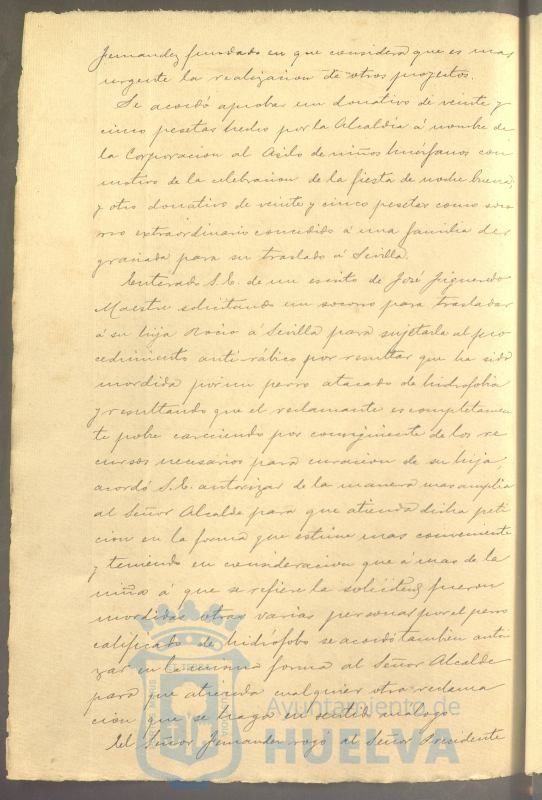 Fernandez fundado en que considera que es mas
urgente la realizacion de otros proyectos.
Se acordó aprobar un donativo de veinte y
cinco pesetas hecho por la Alcaldia á nombre de
la Corporacion al Asilo de niños huérfanos con
motivo de la celebracion de la fiesta de noche buena,
y otro donativo de veinte y cinco pesetas como soco
rro extraordinario concedido á una familia des
graciada para su traslado á Sevilla.
Enterado S.E. de un escrito de José Figueredo
Maestre solicitando un socorro para trasladar
á su hija Rocio á Sevilla para sujetarla al pro
cedimiento anti-rábico por resultar que ha sido
mordida por un perro atacado de hidrofobia
y resultando que el reclamante es completamen
te pobre careciendo por consiguiente de los re
cursos necesarios para curacion de su hija,
acordó S.E. autorizar de la manera mas amplia
al Señor Alcalde para que atienda dicha peti
cion en la forma que estime mas conveniente
y teniendo en consideracion que á mas de la
niña á que se refiere la solicitud fueron
mordidas otras varias personas por el perro
calificado de hidrófobo se acordó tambien auto
rizar en la misma forma al Señor Alcalde
para que atienda cualquier otra reclama
cion que se haga en sentido análogo
El Señor Fernandez rogó al Señor Presidente
Ayuntamiento de
HUELVA